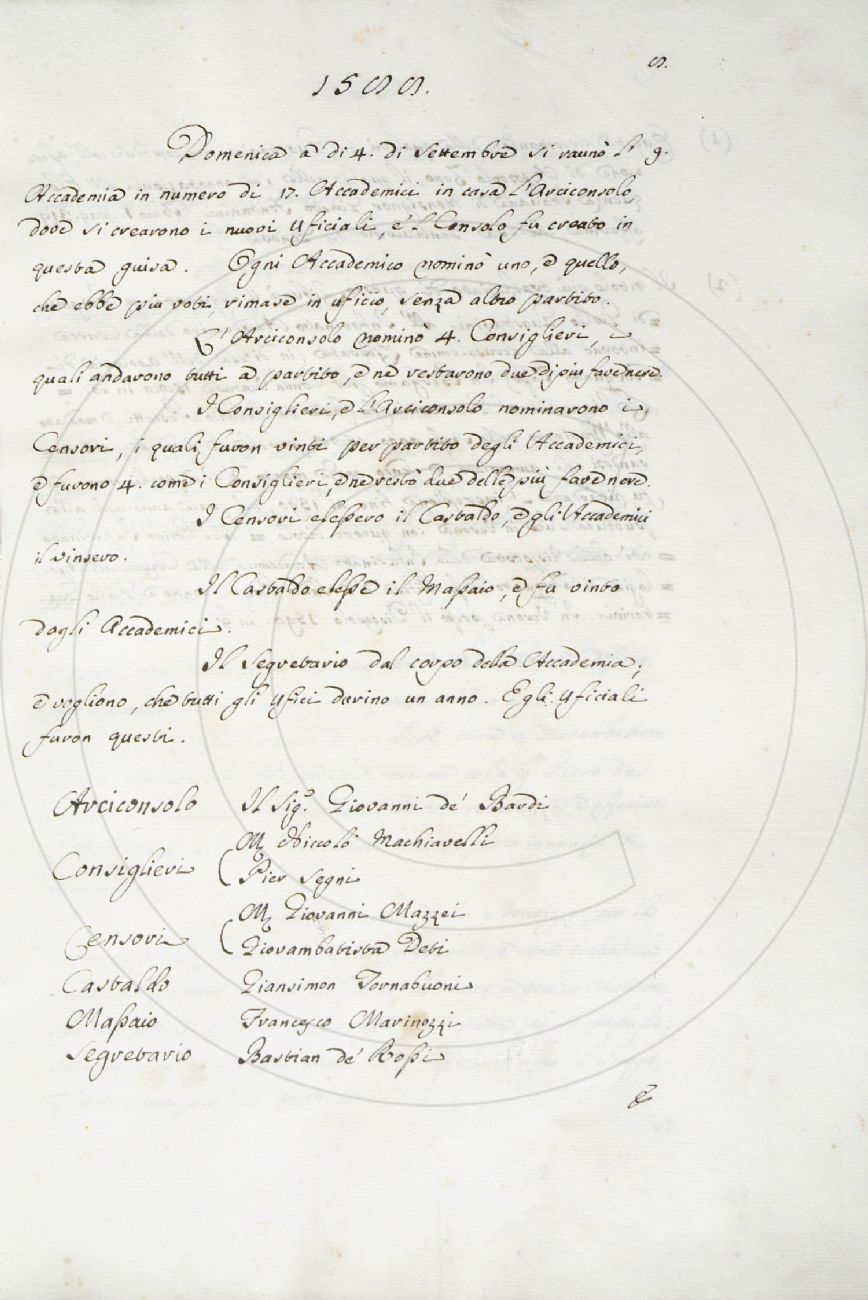 8.
1588.
Domenica a dì 4. di Settembre si raunò l' 9.
Accademia in numero di 17. Accademici in casa l'Arciconsolo,
dove si crearono i nuovi Uficiali, e 'l Consolo fu creato in
questa guisa. Ogni Accademico nominò uno, e quello,
che ebbe più voti, rimase in uficio, senza altro partito.
L' Arciconsolo nominò 4. Consiglieri, i
quali andarono tutti a partito, e ne restarono due di più fave nere.
I Consiglieri, e l'Arciconsolo nominarono i
Censori, i quali furon vinti per partito degli Accademici,
e furono 4. come i Consiglieri, e ne restò due delle più fave nere.
I Censori elessero il Castaldo, e gli Accademici
il vinsero.
Il Castaldo elesse il Massaio, e fu vinto
dagli Accademici.
Il Segretario dal corpo della Accademia;
e vogliono, che tutti gli Ufici durino un anno. E gli Uficiali
furon questi.
Arciconsolo Il Sig.r Giovanni de' Bardi
M. Niccolò Machiavelli
Consiglieri
Pier Segni
M. Giovanni Mazzei
Censori
Giovambatista Deti
Castaldo Giansimon Tornabuoni
Massaio Francesco Marinozzi
Segretario Bastian de' Rossi